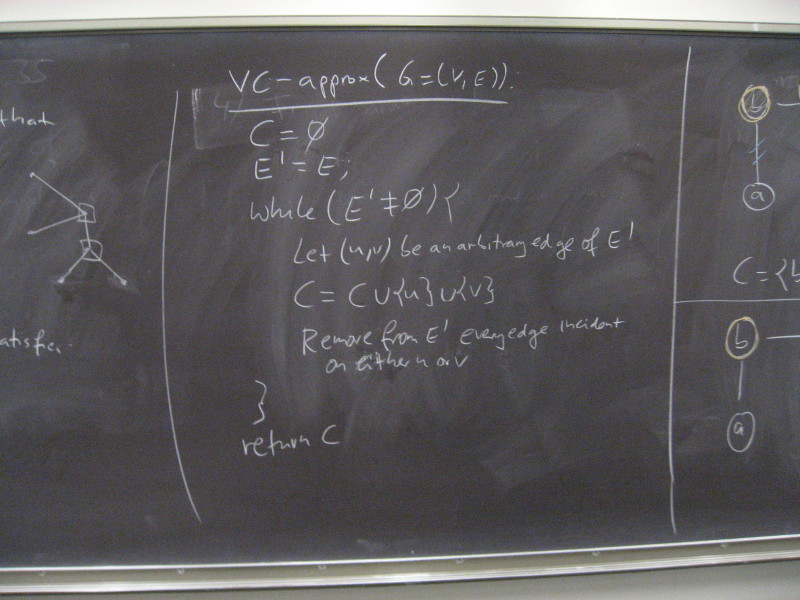 that
atisfies:
VC-approx(G=(V,E)):
C=∅
E'=E;
while(E'≠∅){
Let (u,v) be an arbitrary edge of E'
C=C∪{u}∪{v}
Remove from E' every edge incident
on either u or v
}
return C
b
a
C={b
b
a